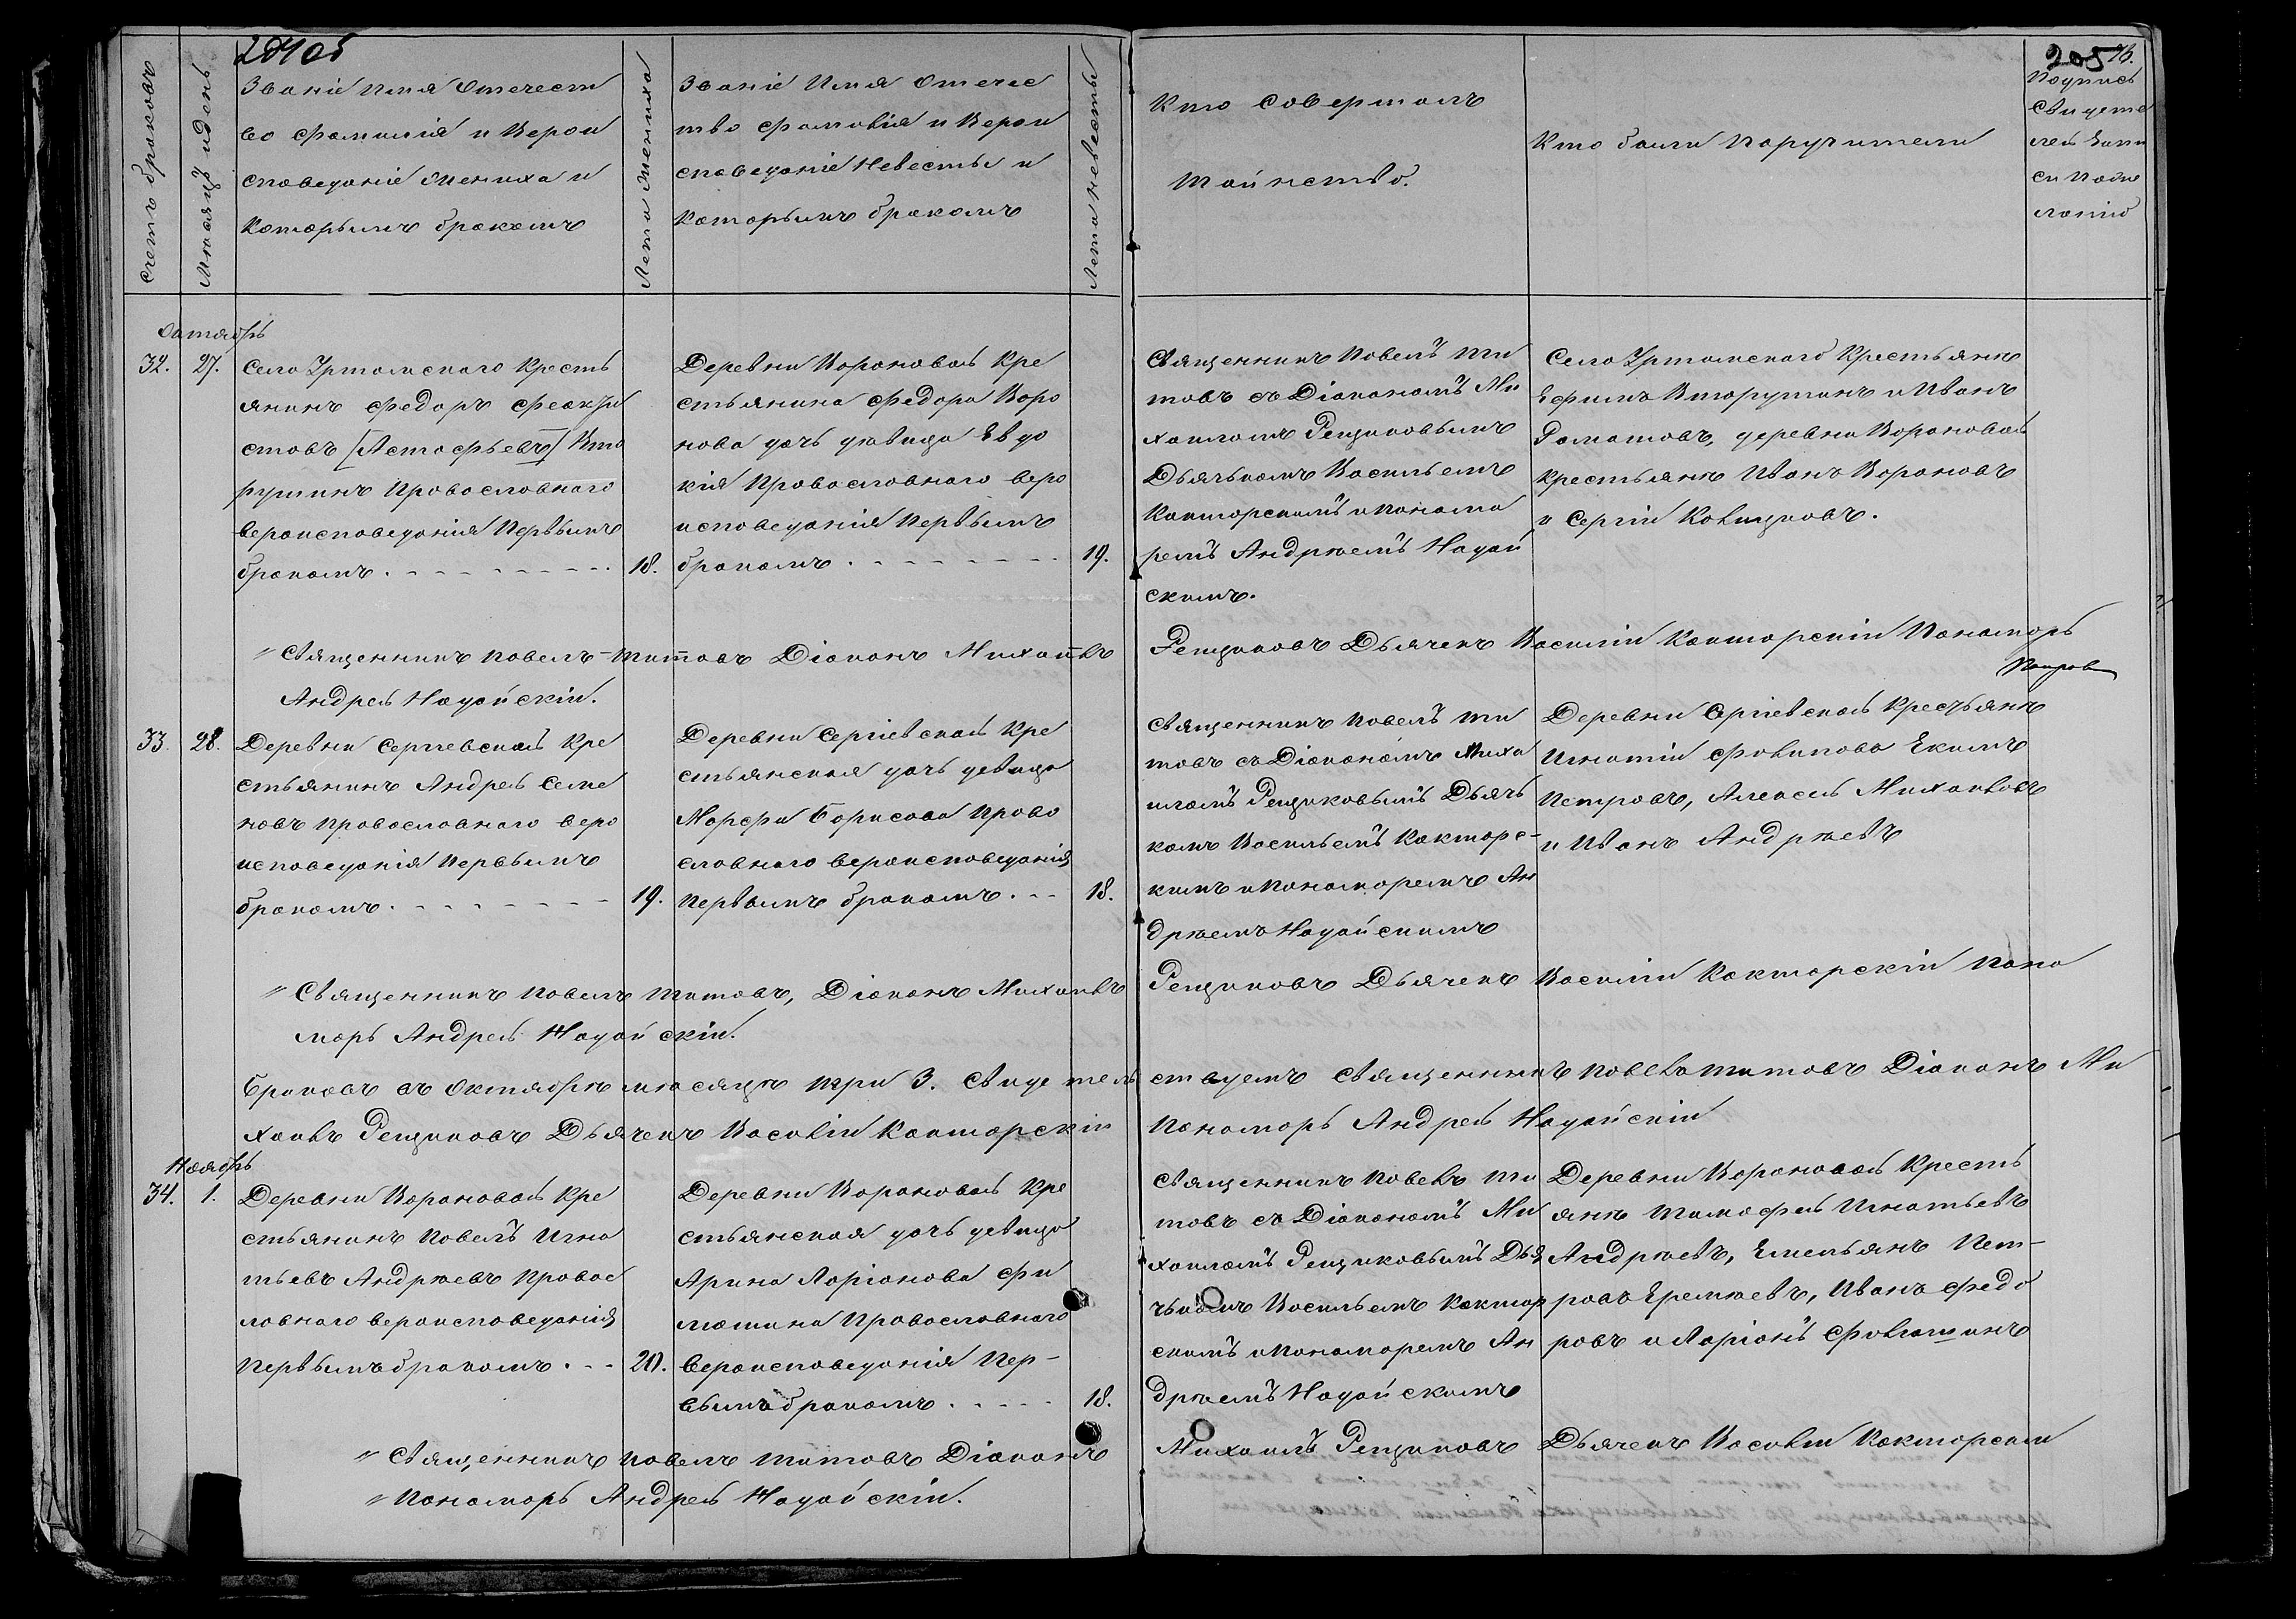 205
Счетъ браковъ
Мѣсяцъ и день
Званіе Имя Отечест
во Фамилія и Верои
споведаніе Жениха и
Которымъ бракомъ
Лета Жениха
Званіе Имя Отечес
тво Фамилія и Верои
споведаніе Невесты и
Которымъ бракомъ
Лета невесты
Кто совершалъ
Таинство.
Кто были Поручители
Подпись
Свидете
лей Запи
си По же
ланію
Октябрь
32. 27.
Села Уртамскаго Кресть
янинъ Федоръ Феокти
стовъ [Астафьевъ] Вто
рушинъ Православнаго
вероисповеданія Первымъ
бракомъ.
18.
Деревни Вороновой Кре
стьянина Федора Воро
нова дочь девица Евдо
кія Православнаго веро
исповеданія Первымъ
бракомъ.
19.
Священникъ Павелъ Ти
товъ съ Діакономъ Ми
хаиломъ Рещиковымъ
Дьячькомъ Васильемъ
Кокторскимъ и Понама
ремъ Андрѣемъ Надой
скимъ.
Села Уртамскаго Крестьяне
Ефимъ Вторушинъ и Иванъ
Доматовъ, деревни Вороновой
крестьяне Иванъ Вороновъ
и Сергіи Ковищновъ.
„ Священникъ Павелъ Титовъ Діаконъ Михаилъ Рещиковъ Дьячекъ Василіи Кокторскіи Понаморь
Андрей Надойскіи.
33. 28.
Деревни Сергіевской Кре
стьянинъ Андрей Семе
новъ Православнаго веро
исповеданія Первымъ
бракомъ.
19.
Деревни Сергіевской Кре
стьянская дочь девица
Марфа Борисова Право
славнаго вероисповеданія
Первымъ бракомъ.
18.
Священникъ Павелъ Ти
товъ съ Діакономъ Миха
иломъ Рещиковымъ Дьячь
комъ Васильемъ Кокторс-
кимъ и Понаморемъ Ан
дрѣемъ Надойскимъ
Деревни Сергіевской Крестьяне
Игнатіи Филипова Екимъ
Петровъ, Алексей Михаиловъ
и Иванъ Андрѣевъ
„ Священникъ Павелъ Титовъ, Діаконъ Михаилъ Рещиковъ Дьячекъ Василіи Кокторскіи Пона
морь Андрей Надойскіи.
Браковъ въ Октябрѣ мѣсяцѣ три 3. Свидетельствуемъ Священникъ Павелъ Титовъ Діаконъ Ми
хаилъ Рещиковъ Дьячекъ Василіи Кокторскіи Понаморь Андрей Надойскіи
Ноябрь
34. 1.
Деревни Вороновой Кре
стьянинъ Павелъ Игна
тьевъ Андрѣевъ Правос
лавнаго вероисповеданія
Первымъ бракомъ.
20.
Деревни Вороновой Кре
стьянская дочь девица
Арина Ларіонова Фи
мошина Православнаго
вероисповеданія Пер-
вымъ бракомъ.
18.
Священникъ Павелъ Ти
товъ съ Діакономъ Ми
хаиломъ Рещиковымъ Дья
чькомъ Васильемъ Коктор
скимъ и Понаморемъ Ан
дрѣемъ Надойскимъ
Деревни Вороновой Кресть
яне Тимофей Игнатьевъ
Андрѣевъ, Емельянъ Пет-
ровъ Еремѣевъ, Иванъ Федо
ровъ и Ларіонъ Филошинъ
„ Священникъ Павелъ Титовъ Діаконъ Михаилъ Рещиковъ Дьячекъ Василіи Кокторскіи
„ Понаморь Андрей Надойскіи.